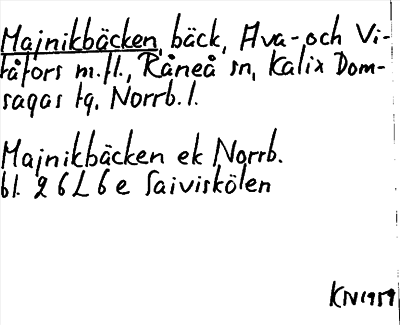 Majnikbäcken, bäck, Ava- och Vi-
tåfors m.fl., Råneå sn, Kalix Dom-
sagas tg, Norrb. l.
Majnikbäcken ek Norrb.
bl. 26L 6e Saiviskölen
KN 1959